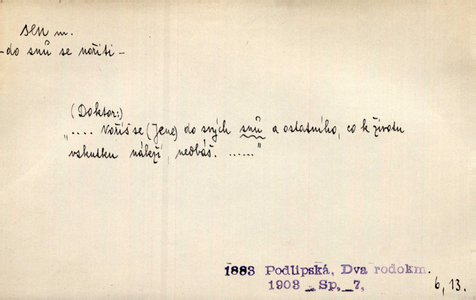 sen m.
-do snů se nořiti-
(Doktor:)
".... Noříš se (Jene) do svých snů a ostatního, co k životu
vskutku náleží, nedbáš. ......"
1883 Podlipská, Dva rodokm.
1903 Sp. 7,
6, 13.